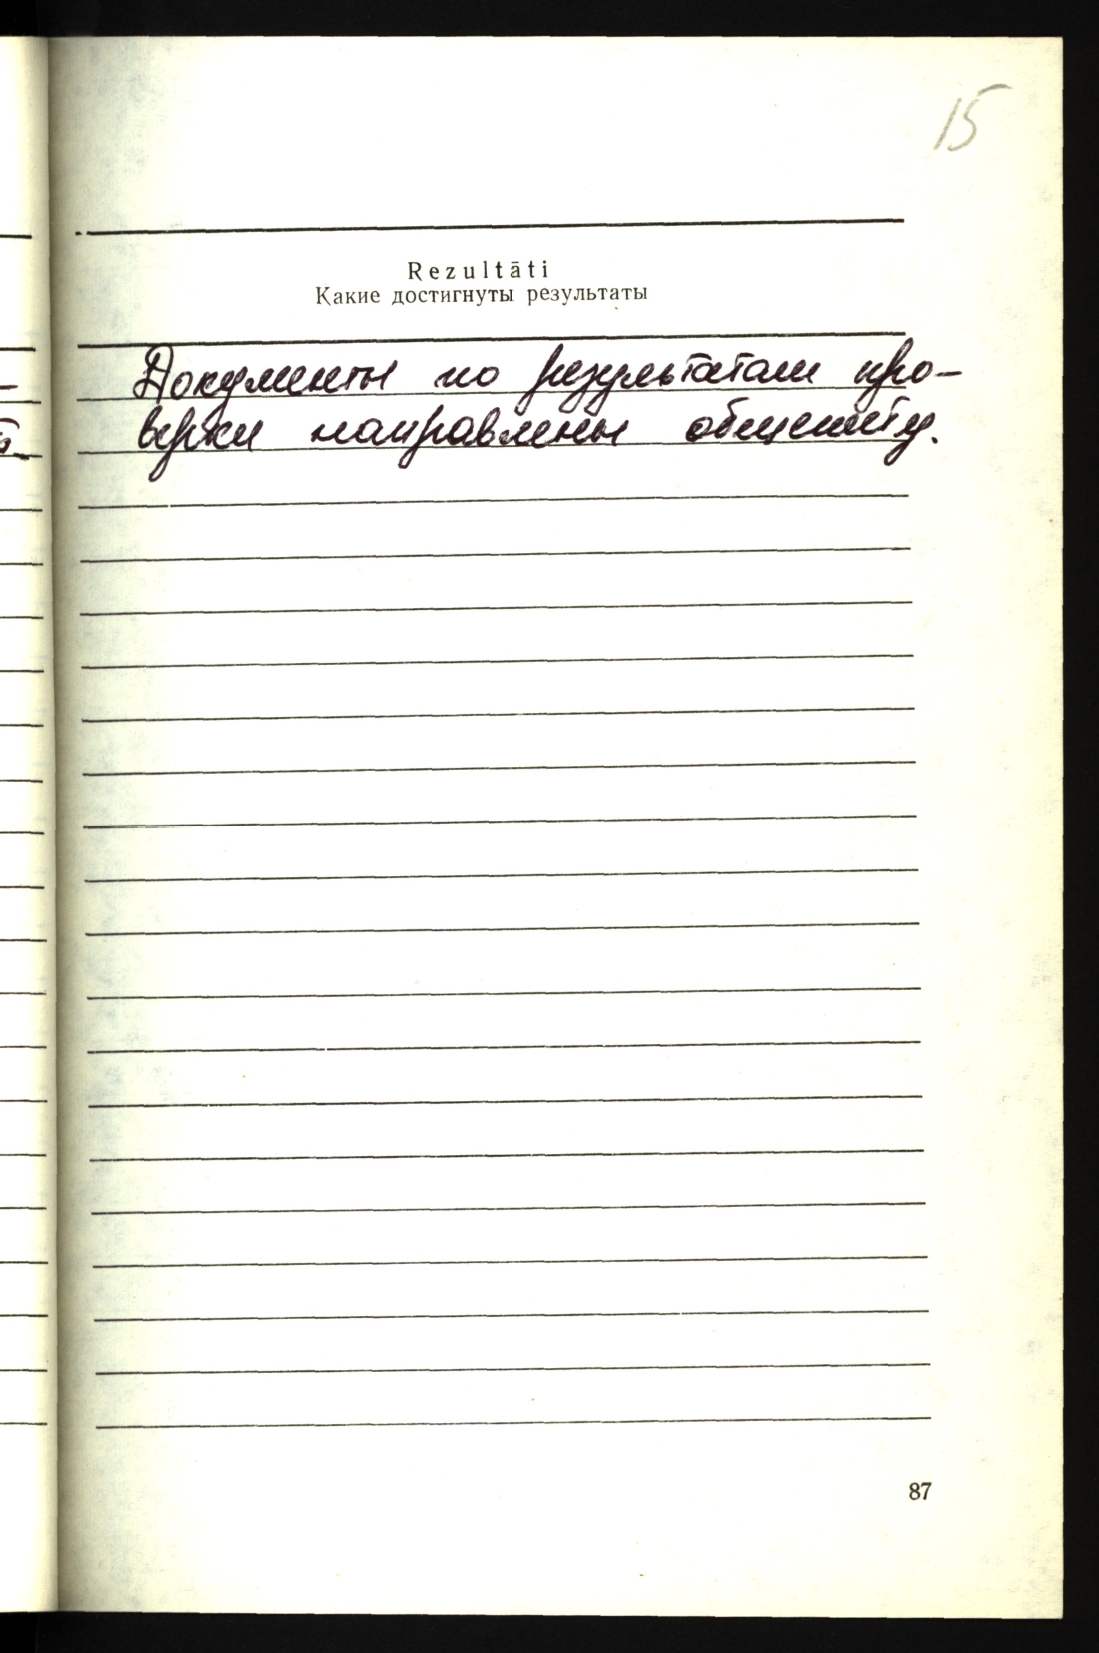 15
Rezultāti
Какие достигнуты результаты
Документы по результатам про-
верки направлены
87